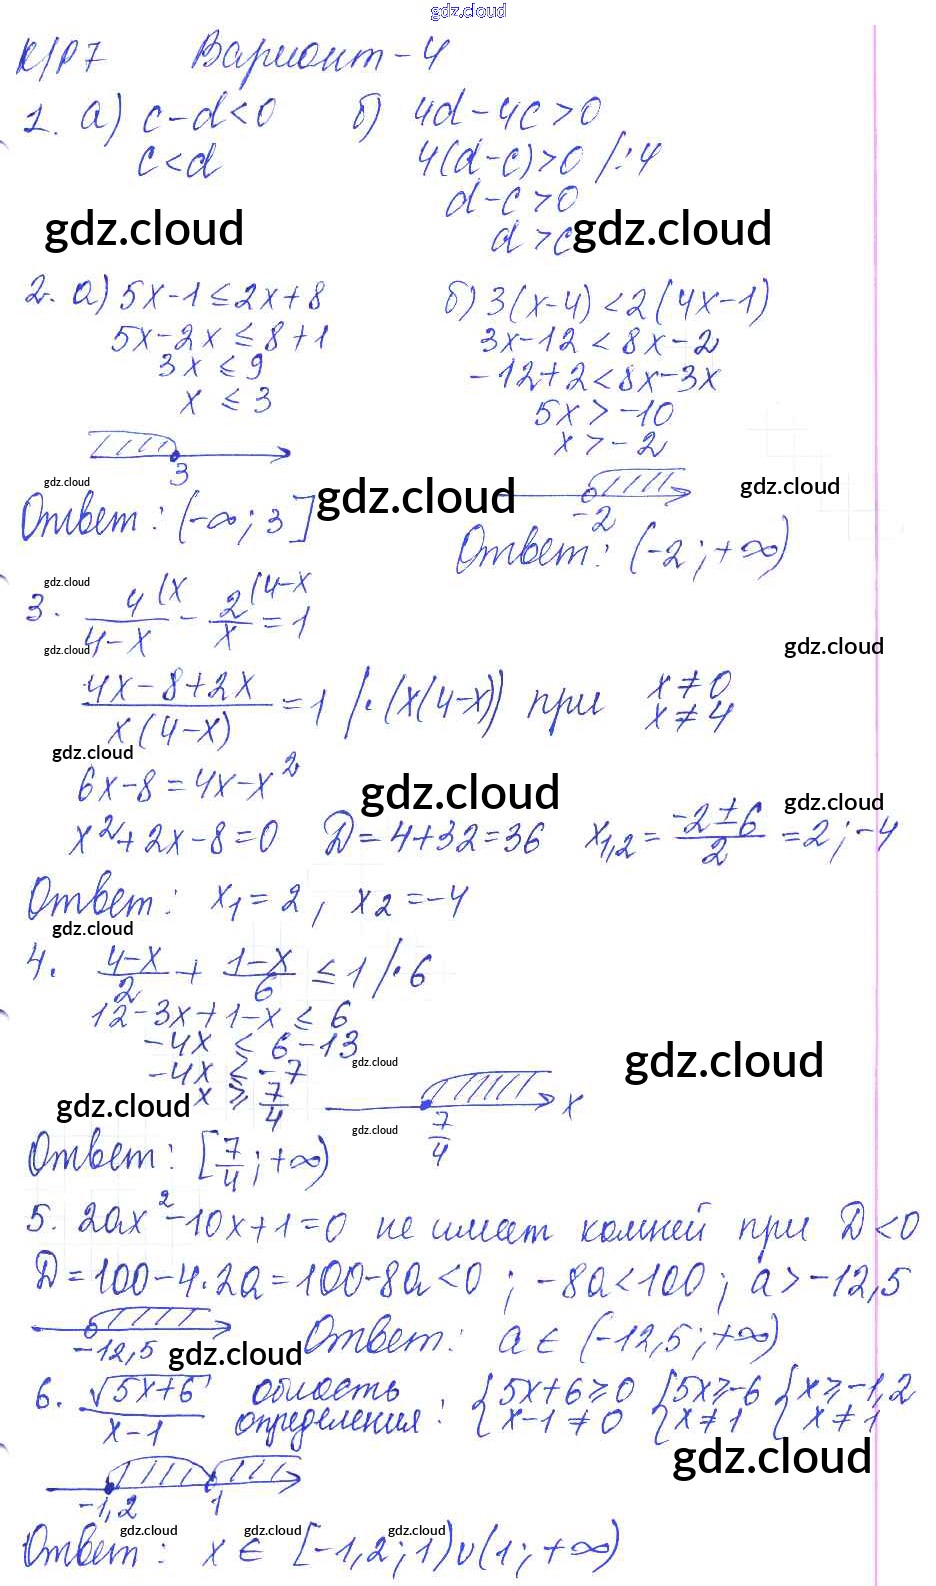 gdz.cloud
К/Р7 Вариант-4
1. а) c-d<0 б) 4d-4c>0
c<d 4(d-c)>0 /:4
d-c>0
gdz.cloud d>c gdz.cloud
2. а) 5x-1≤2x+8 б) 3(x-4)<2(4x-1)
5x-2x≤8+1 3x-12<8x-2
3x≤9 -12+2<8x-3x
x≤3 5x>-10
x>-2
3
gdz.cloud gdz.cloud gdz.cloud
-2
Ответ: (-∞; 3] Ответ: (-2; +∞)
gdz.cloud
3. 4(x/4-x - 2(4-x/x = 1
gdz.cloud gdz.cloud
4x-8+2x/x(4-x) = 1 /·(x(4-x)) при x≠0
x≠4
gdz.cloud
6x-8=4x-x²
gdz.cloud gdz.cloud
x²+2x-8=0 D=4+32=36 x1,2= -2±6/2 =2;-4
Ответ: x1=2, x2=-4
gdz.cloud
4. 4-x/2 + 1-x/6 ≤1 /·6
12-3x+1-x≤6
-4x≤6-13
gdz.cloud gdz.cloud
-4x≤-7
gdz.cloud x≥7/4 x
7/4
gdz.cloud
Ответ: [7/4; +∞)
5. 2ax²-10x+1=0 не имеат комней при D<0
D=100-4·2a=100-8a<0; -8a<100; a>-12,5
-12,5 gdz.cloud Ответ: a∈(-12,5; +∞)
6. √5x+6/x-1 область определения: {5x+6≥0 {5x≥-6 {x≥-1,2
x-1≠0 x≠1 x≠1
gdz.cloud
-1,2 1
gdz.cloud gdz.cloud gdz.cloud
Ответ: x∈[-1,2; 1)∪(1; +∞)